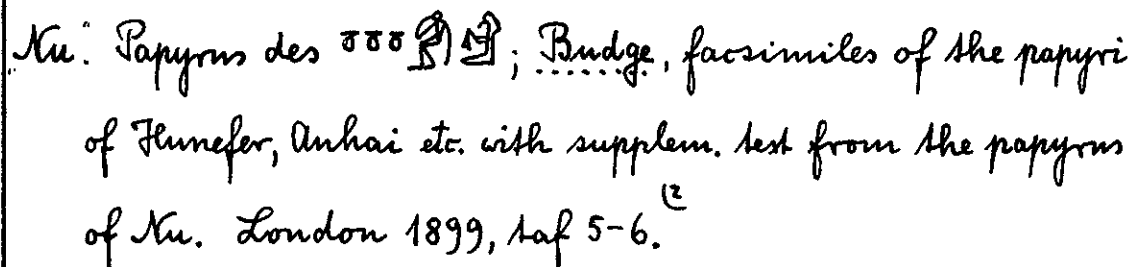 „Nu“: Papyrus des 𓏌𓏌𓏌; Budge, facsimiles of the papyri
of Hunefer, Anhai etc. with supplem. text from the papyrus
of Nu. London 1899, taf 5-6. (2